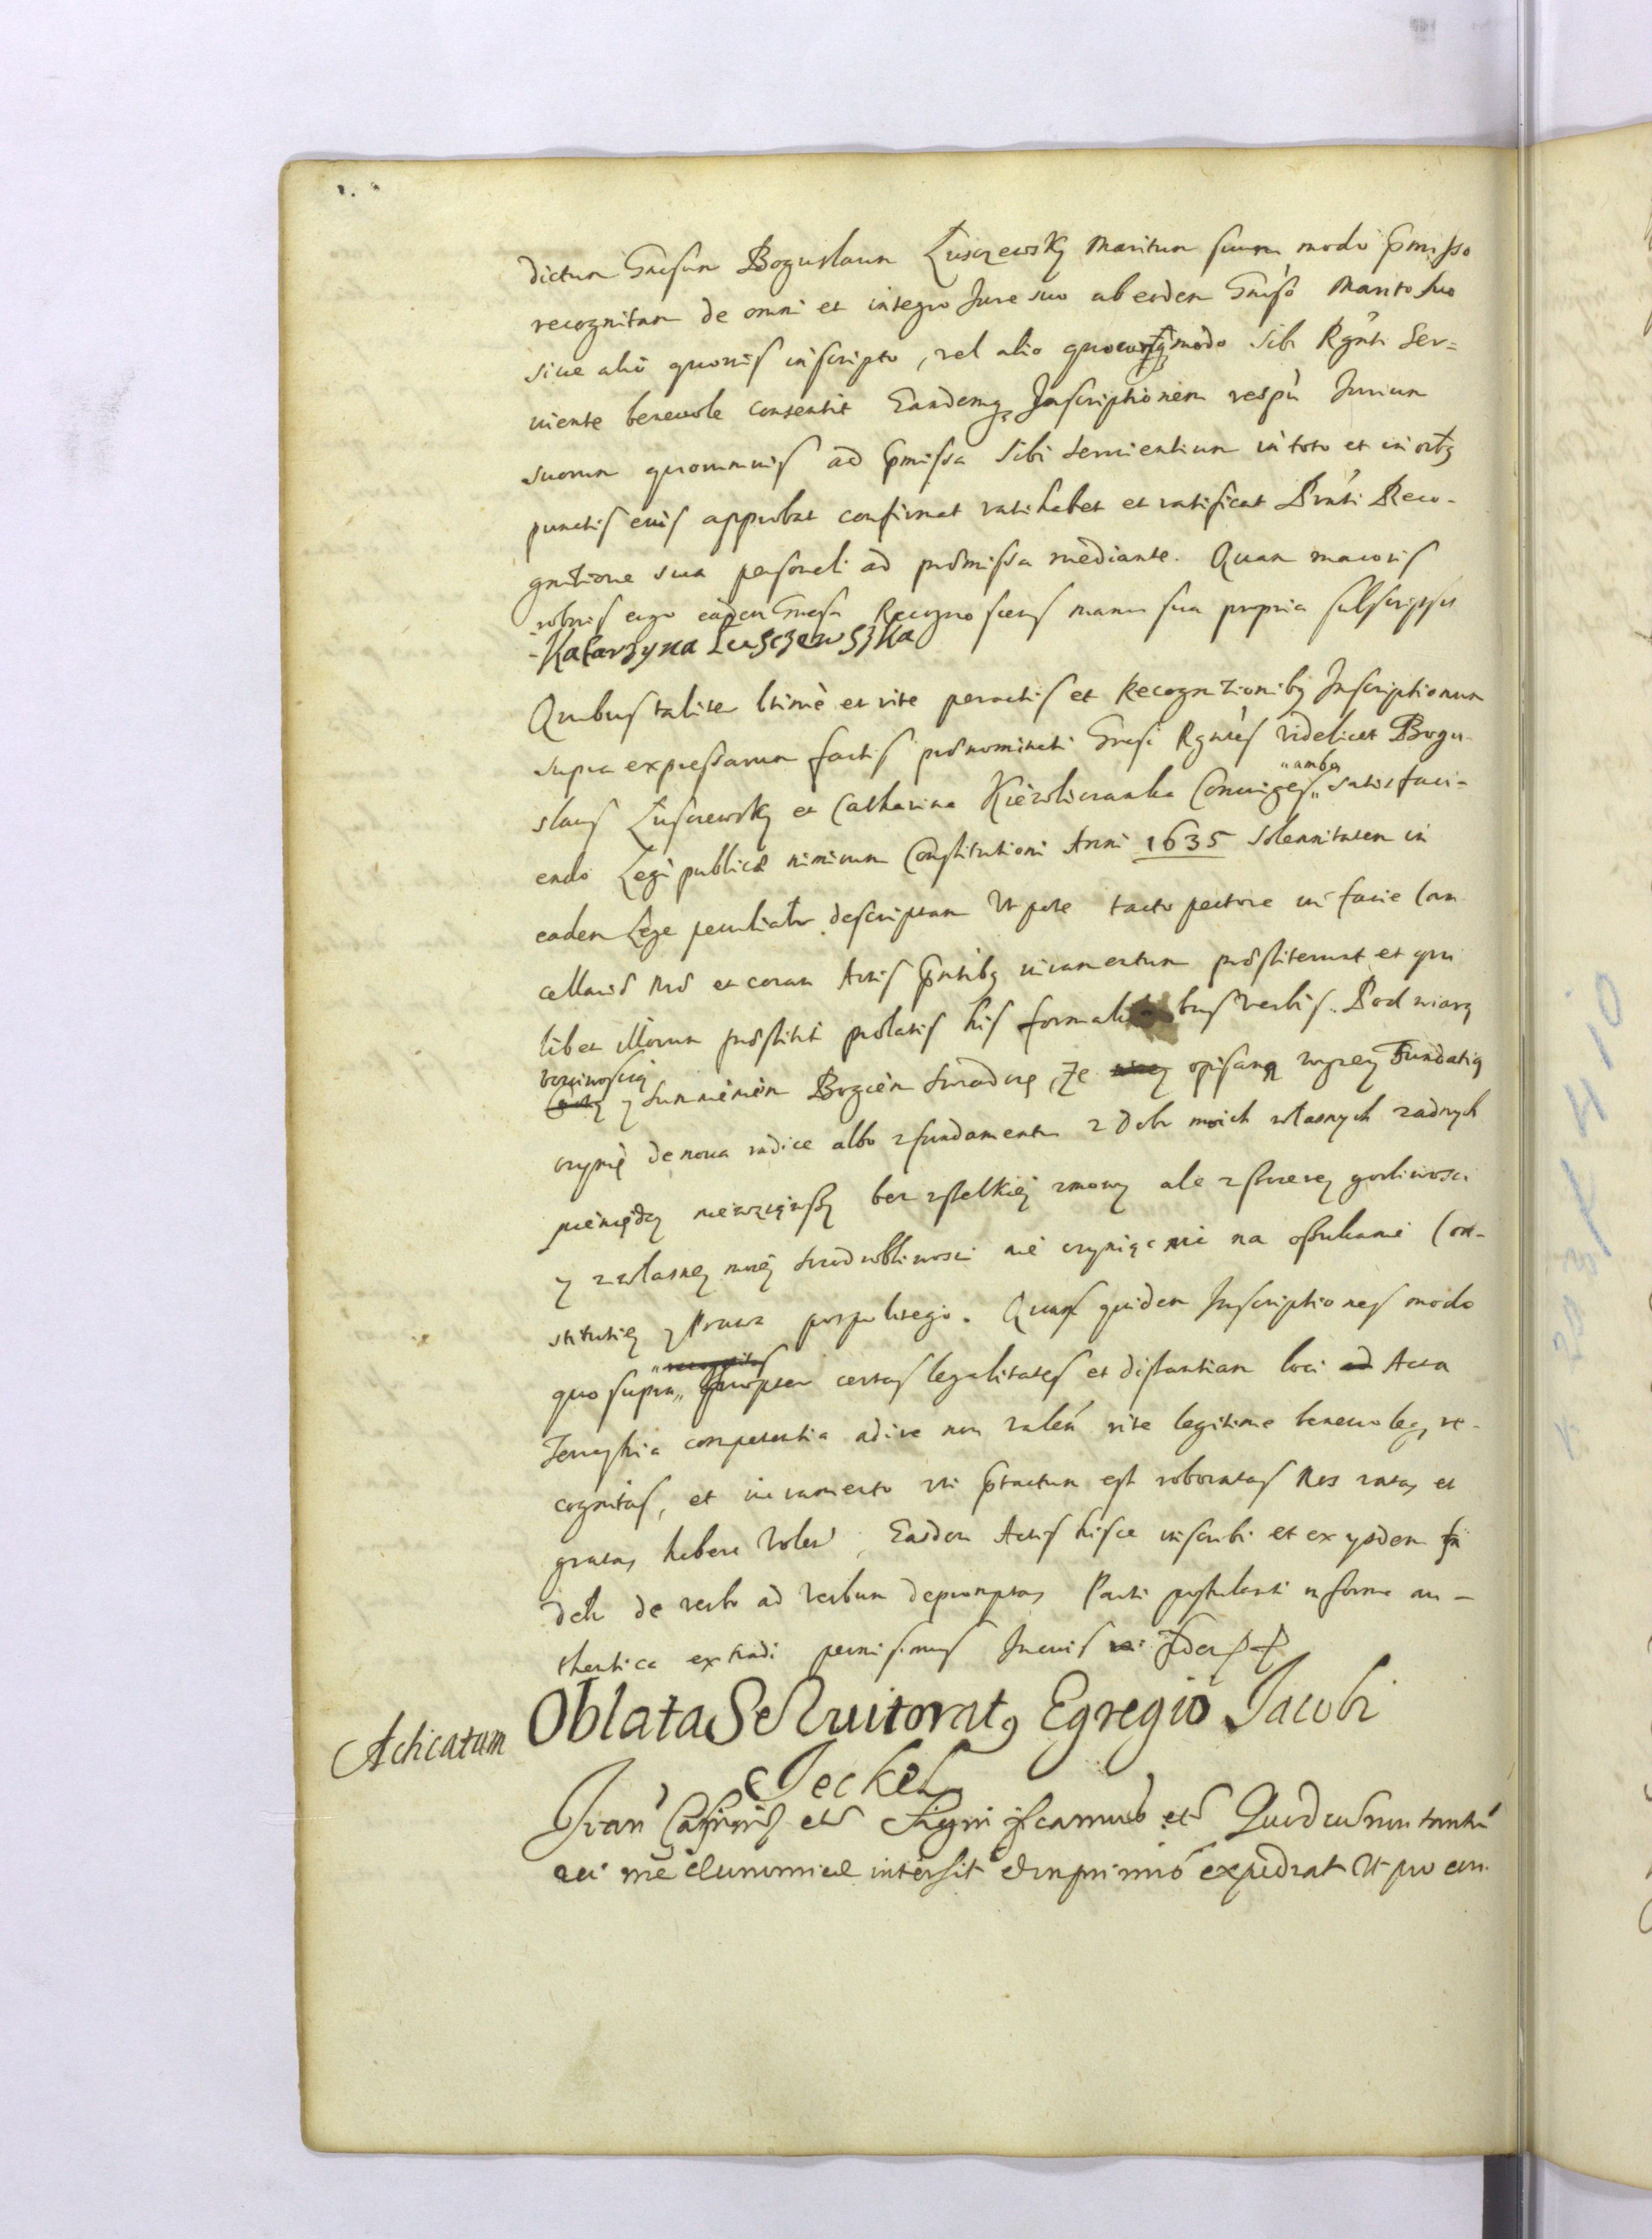 dictum Gnosum Boguslaum Łusczewsky Maritum suum modo pmisso
recognitam de omni et integro Jure suo ab eodem Gnoso Marito suo
siue alio quouis inscripto, vel alio quocunqz modo sibi Rgnti Ser=
uiente beneuole consentit Eandemqz Inscriptionem respu Jurium
suorum quorumuis ad pmissa sibi seruientium in toto et in oibz
punctis eius approbat confirmat ratihabet et ratificat Prnti Reco-
gnitione sua personali ad praemissa mediante. Quam maioris
roboris ergo eadem Gnosa Recognoscens manu sua propria subscripsit
- Katarzyna Łusczewszka
Quibus taliter ltime et rite peractis et Recognitionibz Inscriptionum
supra expressarum factis praenominati Gnosi Rgntes videlicet Bogu-
"ambo
slaus Łusczewsky et Catharina Coniuges" satisfaci-
endo Legi publicae nimirum Constitutioni Anni 1635 solennitatem in
eadem Lege peculiatr descriptam Ut pote tacto pectore in facie Can
cellariae nrae et coram Actis pntibz iuramentum praestiterunt et qui
libet illorum praestitit prolatis his formalibus verbis. Pod wiarą
poczciwoscią
y Sumnieniem Bozem swiadczę, Ze opisaną wyzey Fundatią
czynię de noua radice albo z fundamentu z Dobr moich własnych zadnych
pieniędzy niewziąwszy bez wszelkiey zmowy ale z sczerey gorliwosci
y z własney moiey sczodrobliwosci nie czyniąc nic na oszukanie Con-
stitutiey y Prawa pospolitego. Quas quidem Inscriptiones modo
quo supra" propter certas legalitates et distantiam loci ad Acta
Terrestria competentia adire non valen rite legitime beneuoleqz re-
cognitas, et iuramento uti ptactum est roboratas Nos ratas et
gratas habere volen, Easdem Actis hisce inscribi et ex ysdem fi
delr de verbo ad verbum depromptas Parti postulanti in forma au-
thentica extradi permisimus Juris
Acticatum Oblata Seruitoratq Egregio Jacobi
Jeckel
Joan Casimirq etc Significamus etc Quod cum non tantu
rei nrae intersit expediat Ut pro